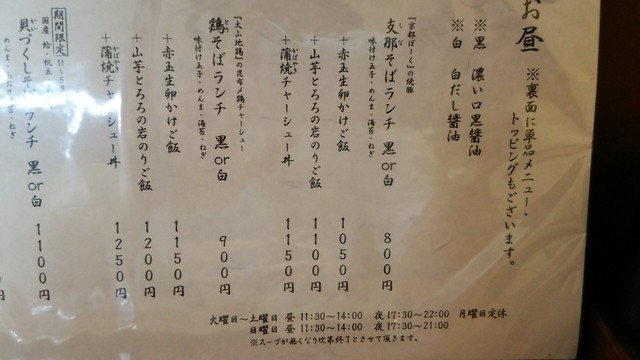 お昼
※裏面に単品メニュー・
トッピングもございます。
※黒 濃い口黒醤油
※白 白だし醤油
『京都ぽーく』の焼豚
支那そばランチ 黒or白 800円
しな
味付け玉子・めんま・海苔・ねぎ
+赤玉生卵かけご飯 1050円
+山芋とろろの岩のりご飯 1100円
+蒲焼チャーシュー丼 1150円
かばやき
『大山地鶏』の昆布〆鶏チャーシュー
鶏そばランチ 黒or白 900円
味付け玉子・めんま・海苔・ねぎ
+赤玉生卵かけご飯 1150円
+山芋とろろの岩のりご飯 1200円
+蒲焼チャーシュー丼 1250円
かばやき
期間限定
国産 蛤・帆立
貝づくしそばランチ 黒or白 1100円
めんま・海苔・ねぎ
火曜日～土曜日 昼 11:30～14:00 夜 17:30～22:00 月曜日定休
日曜日 昼 11:30～14:00 夜 17:30～21:00
※スープが無くなり次第終了とさせて頂きます。